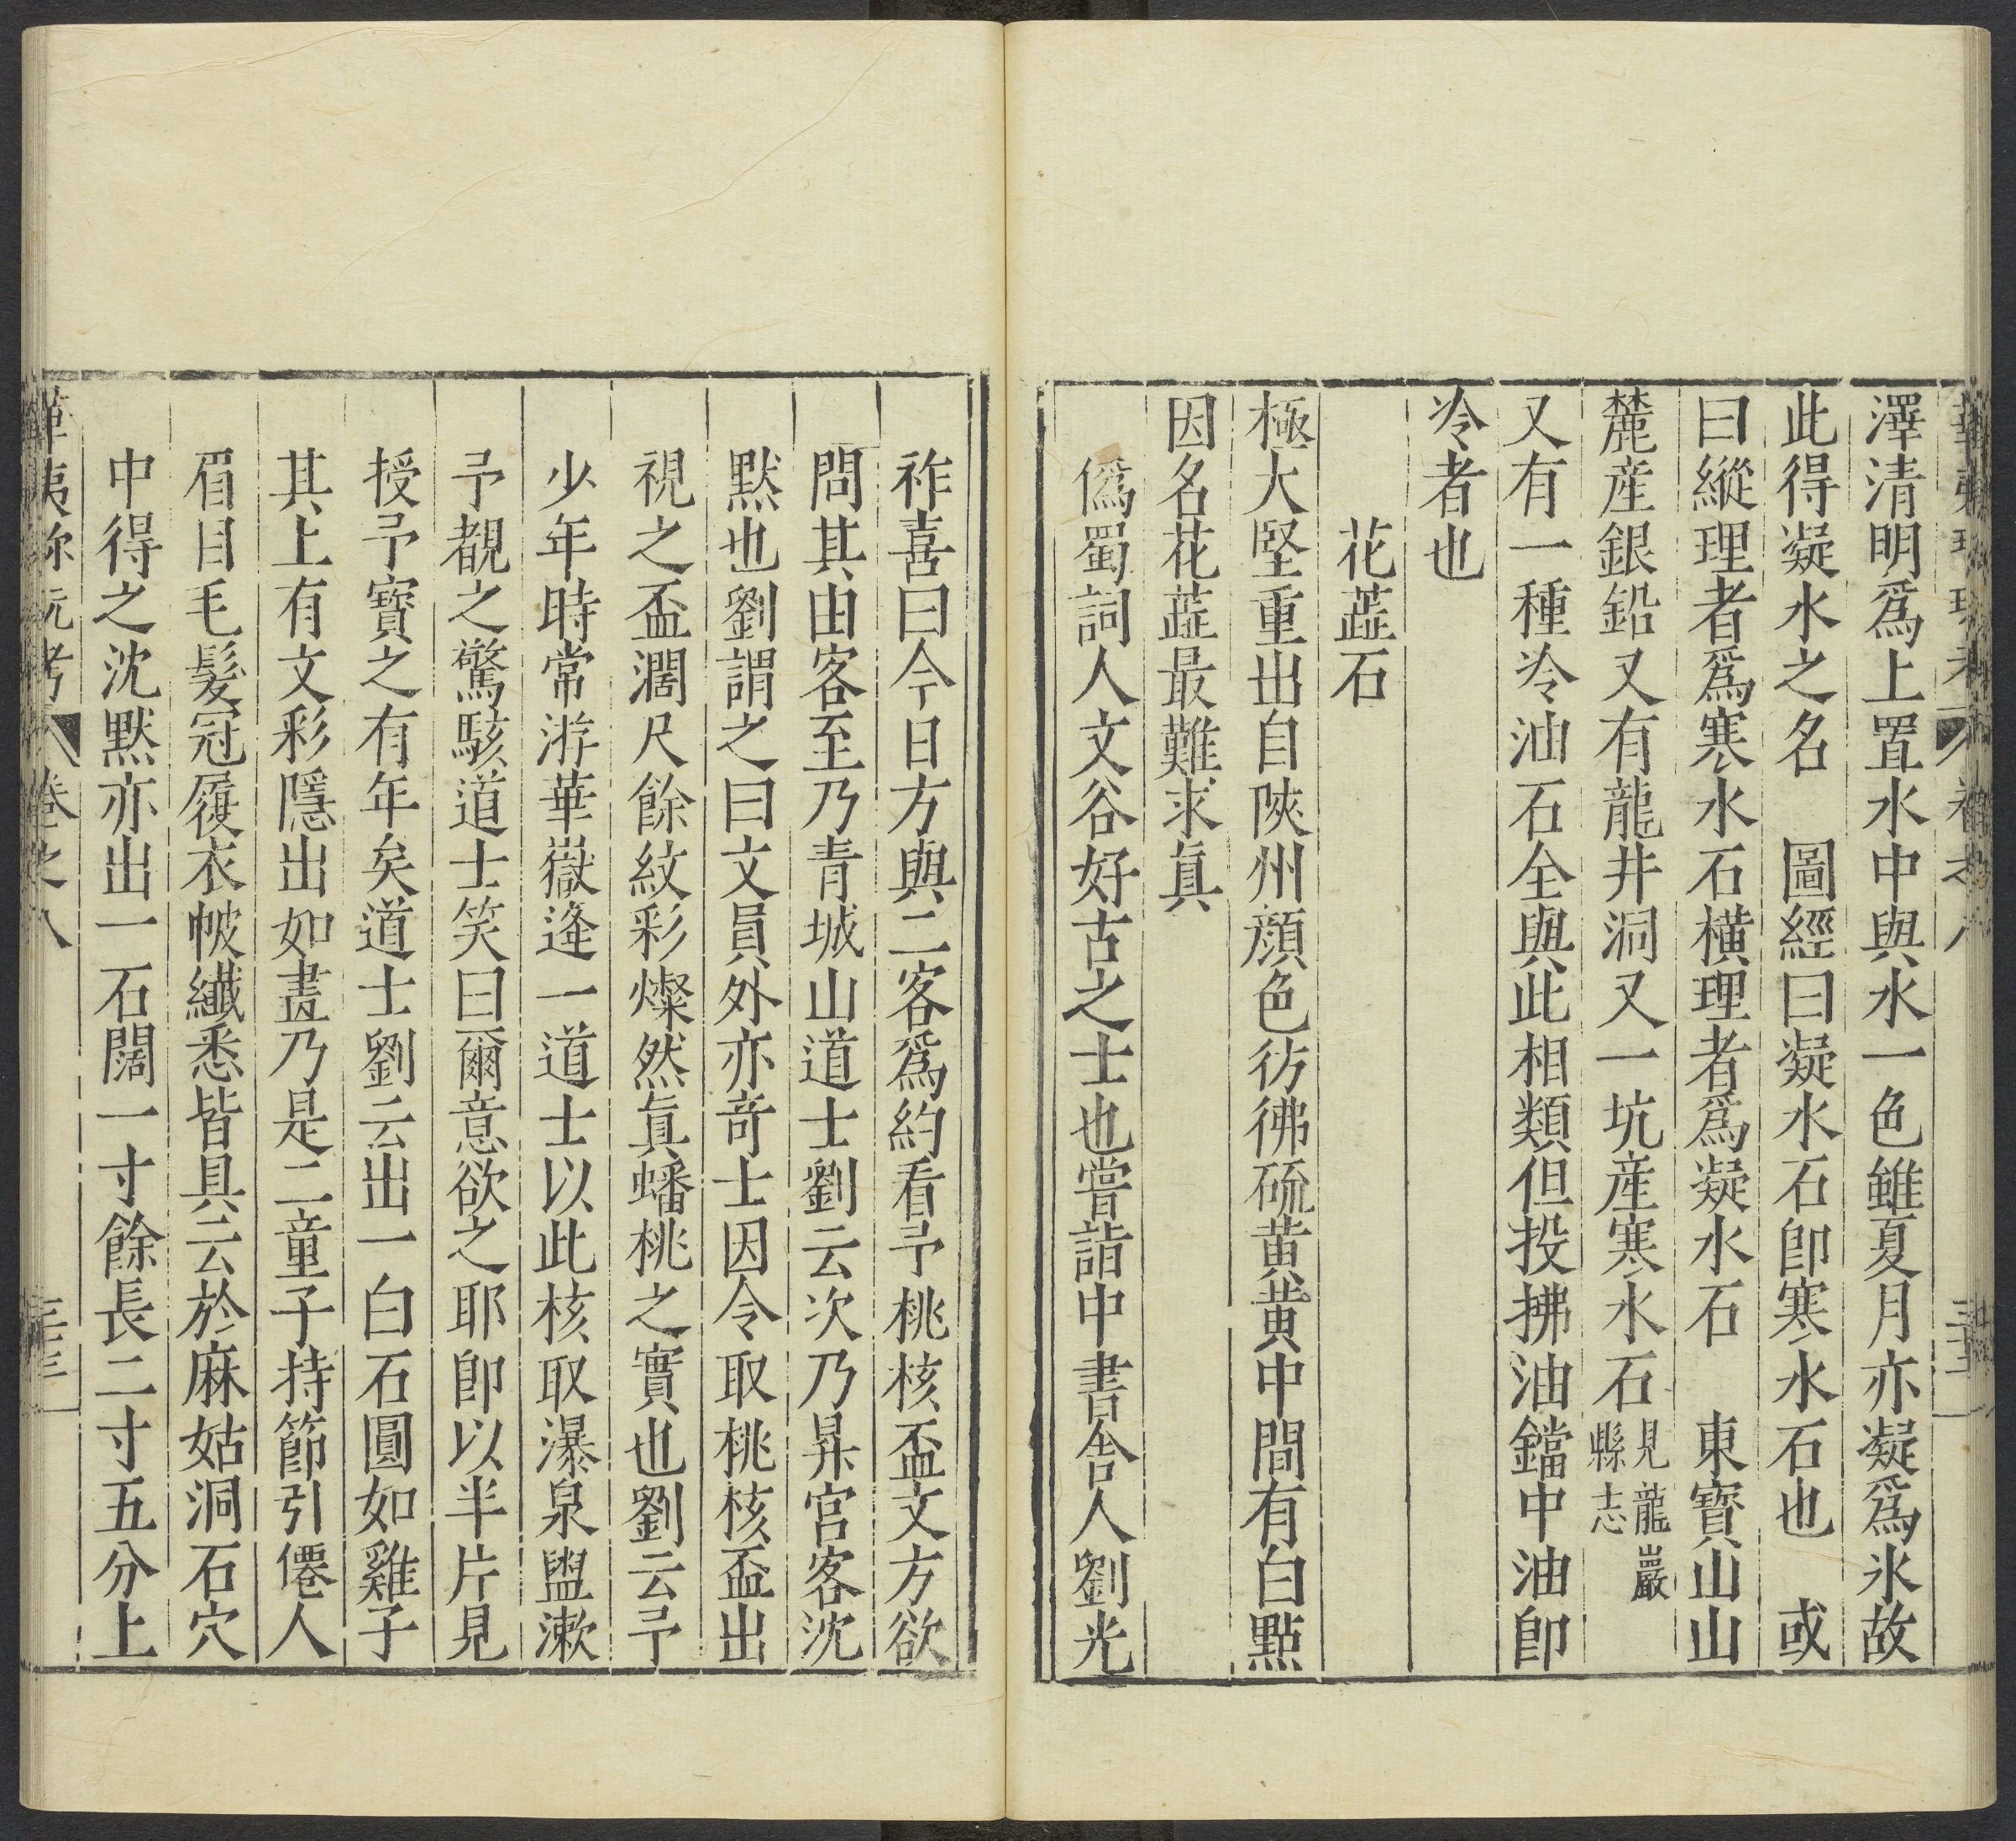 澤清明爲上置水中與水一色雖夏月亦凝爲氷故
此得凝水之名　圖經曰凝水石卽寒水石也　或
曰縱理者爲寒水石橫理者爲凝水石　東寶山山
麓産銀鉛又有龍井洞又一坑産寒水石見龍巖縣志
又有一種冷油石全與此相類但投拂油鐺中油卽
冷者也
花蕋石
極大堅重出自陝州顔色彷彿硫黄黄中間有白點
因名花蕋最難求真
僞蜀詞人文谷好古之士也嘗詣中書舍人劉光
祚喜曰今日方與二客爲約看予桃核盃文方欲
問其由客至乃青城山道士劉云次乃昇宫客沈
默也劉謂之曰文員外亦竒士因令取桃核盃出
視之盃濶尺餘紋彩燦然眞蟠桃之實也劉云予
少年時常游華嶽逢一道士以此核取瀑泉盥漱
予覩之驚駭道士笑曰爾意欲之耶卽以半片見
授予寶之有年矣道士劉云出一白石圓如雞子
其上有文彩隱出如畫乃是二童子持節引僊人
眉目毛髮冠履衣帔纖悉皆具云於麻姑洞石穴
中得之沈默亦出一石闊一寸餘長二寸五分上
卷之八